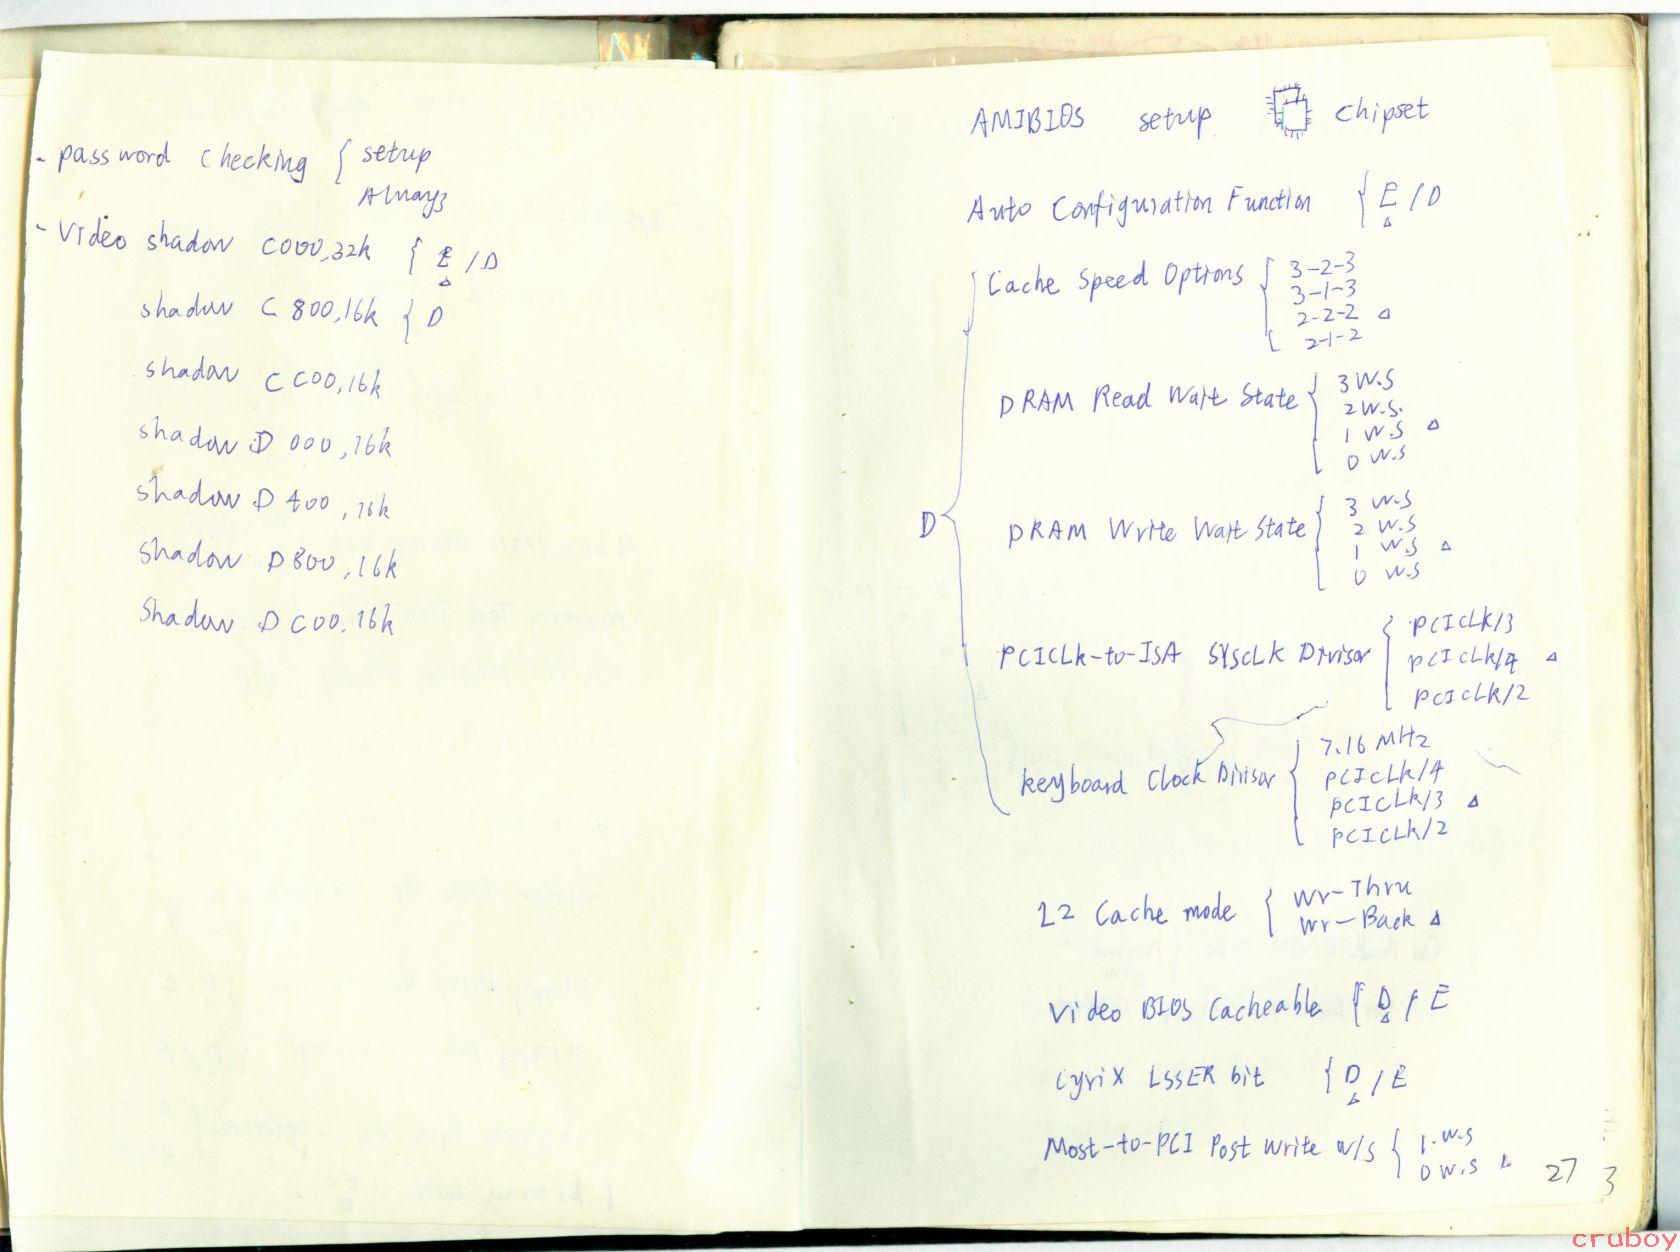 - password checking { setup
Always
- Video shadow C000,32k { E / D
△
shadow C800,16k { D
shadow CC00,16k
shadow D000,16k
shadow D400,16k
shadow D800,16k
Shadow DC00,16k
AMIBIOS setup chipset
Auto Configuration Function { E / D
△
D
Cache Speed Options { 3-2-3
3-1-3
2-2-2 △
2-1-2
DRAM Read Wait State { 3 W.S
2 W.S.
1 W.S △
0 W.S
DRAM Write Wait State { 3 W.S
2 W.S
1 W.S △
0 W.S
PCICLK-to-ISA SYSCLK Divisor { PCICLK/3
PCICLK/4 △
PCICLK/2
keyboard Clock Divisor { 7.16 MHz
PCICLK/4
PCICLK/3 △
PCICLK/2
L2 Cache mode { Wr-Thru
Wr-Back △
Video BIOS Cacheable { D / E
△
Cyrix LSSER bit { D / E
△
Most-to-PCI Post Write W/S { 1.W.S
0 W.S △
27 3
cruboy